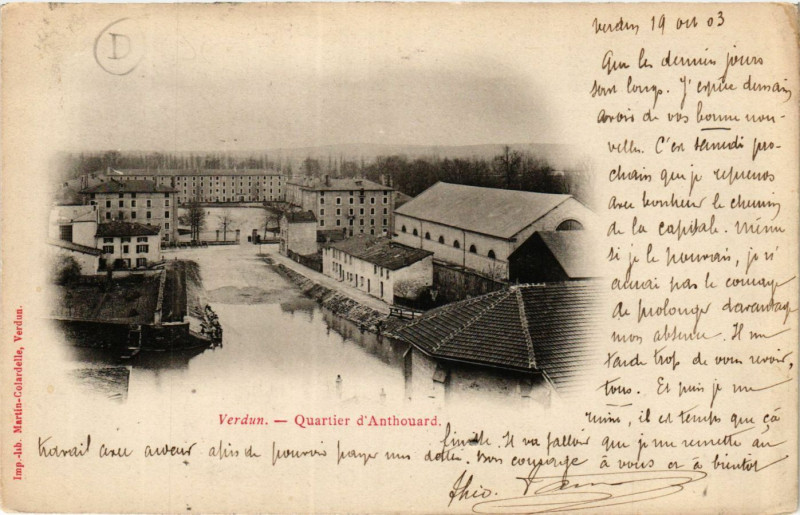 D
Verdun 19 oct 03
Que les derniers jours
sont longs. J'espère demain
avoir de vos bonne nou-
velles. C'est samedi pro-
chain que je reprends
avec bonheur le chemin
de la capitale. Même
si je le pouvais, je n'
aurai pas le courage
de prolonger davantage
mon absence. Il me
tarde trop de vous revoir,
tous. Et puis je me
ruine, il est temps que çà
finisse. Il va falloir que je me remette au
travail avec ardeur afin de pouvoir payer mes dettes. Bon courage à vous et à bientôt
Théo.
Verdun. — Quartier d'Anthouard.
Imp.-lib. Martin-Colardelle, Verdun.